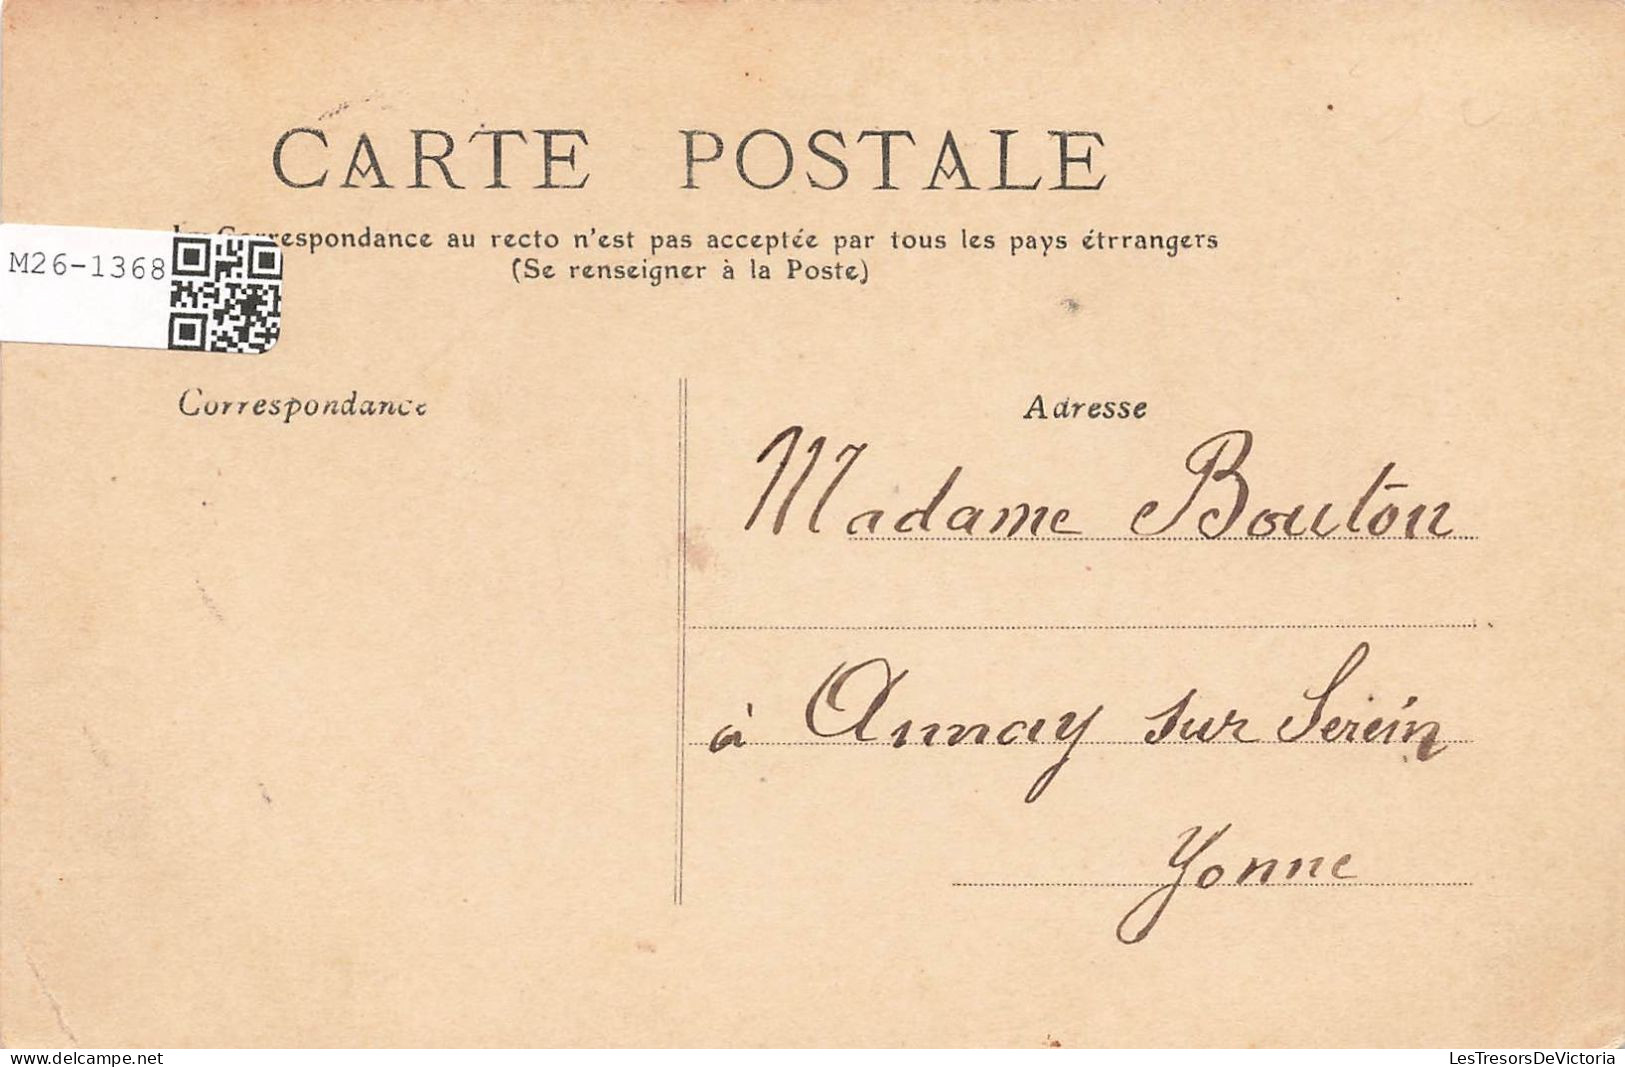 CARTE POSTALE
La Correspondance au recto n'est pas acceptée par tous les pays étrrangers
(Se renseigner à la Poste)
M26-1368
Correspondance
Adresse
Madame Bouton
à Annay sur Serein
Yonne
Fermer la fenêtre
LesTresorsDeVictoria